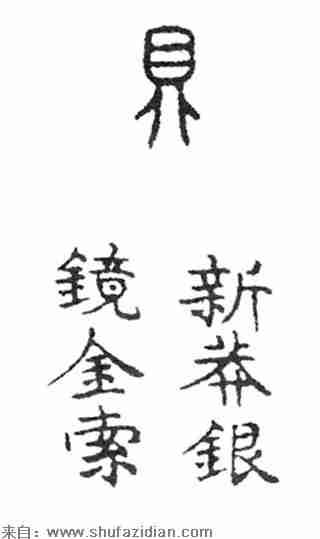 具
新莽銀
鏡金索
来自：www.shufazidian.com